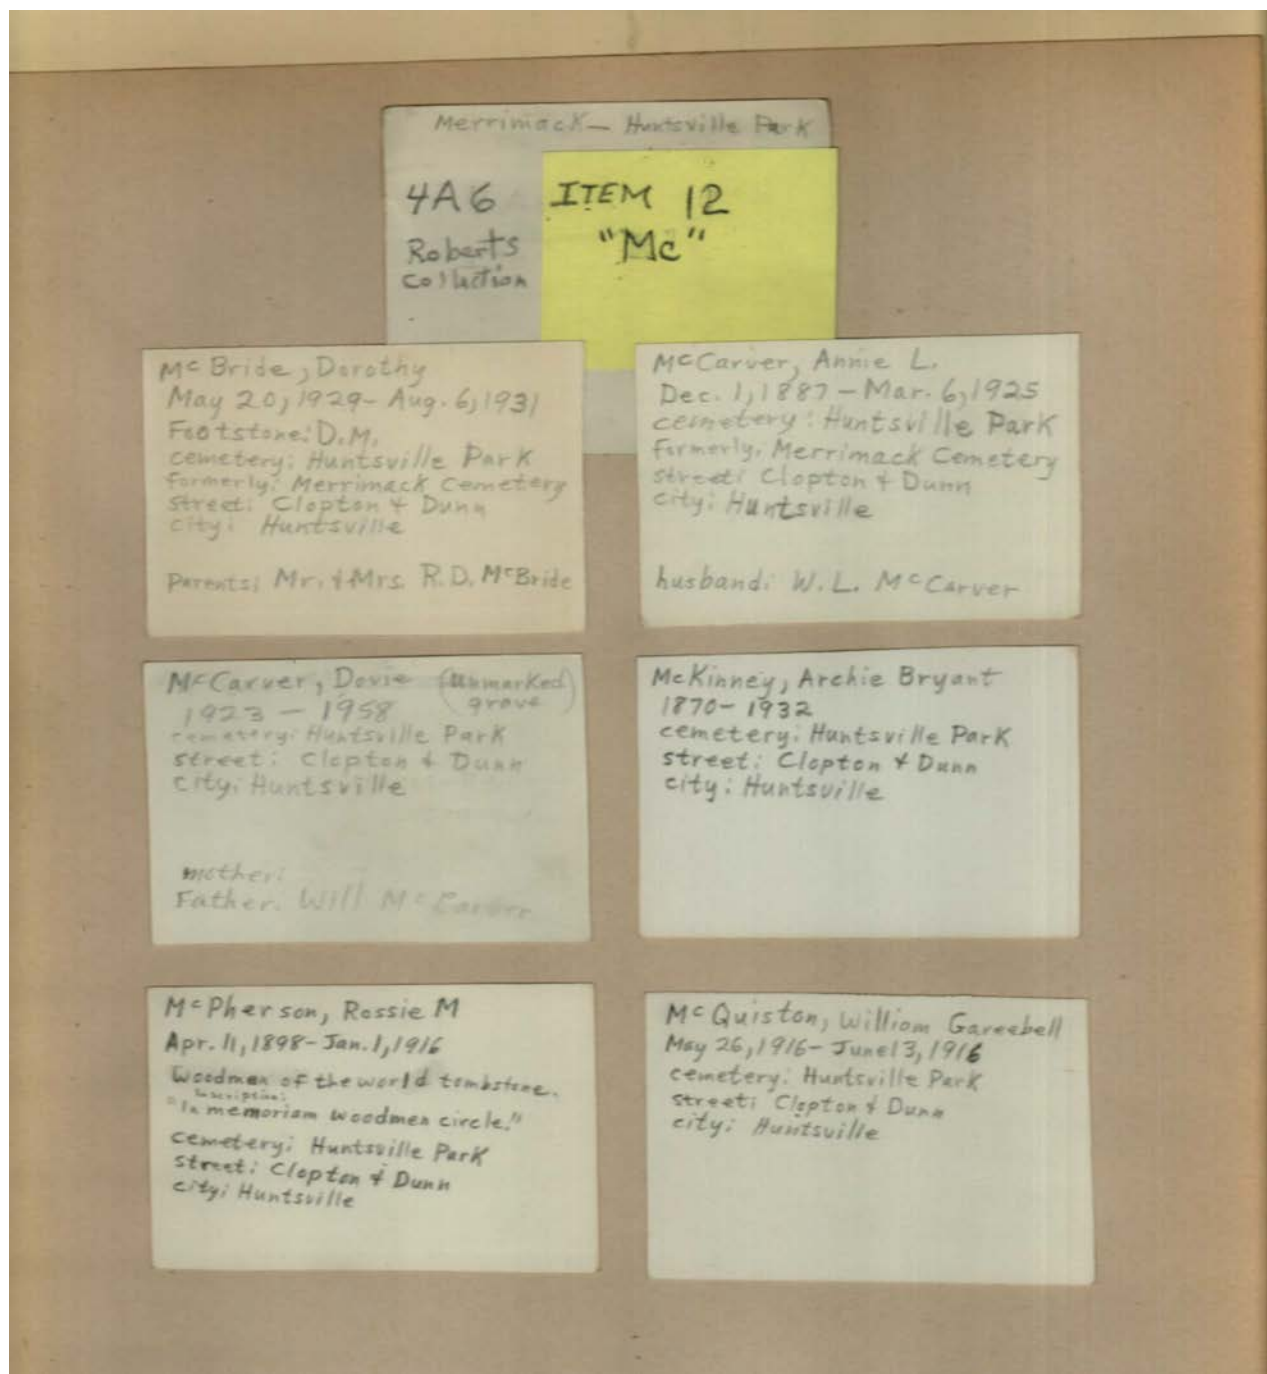 Merrimack - Huntsville Park
4A6
Roberts
Collection
ITEM 12
"Mc"
McBride, Dorothy
May 20, 1929 - Aug. 6, 1931
Footstone: D.M.
cemetery: Huntsville Park
formerly: Merrimack Cemetery
street: Clopton & Dunn
city: Huntsville
Parents: Mr. & Mrs. R.D. McBride
McCarver, Annie L.
Dec. 1, 1887 - Mar. 6, 1925
cemetery: Huntsville Park
formerly: Merrimack Cemetery
street: Clopton & Dunn
city: Huntsville
husband: W.L. McCarver
McCarver, Dovie (unmarked
grave)
1923 - 1958
cemetery: Huntsville Park
street: Clopton & Dunn
city: Huntsville
mother:
Father: Will McCarver
McKinney, Archie Bryant
1870 - 1932
cemetery: Huntsville Park
street: Clopton & Dunn
city: Huntsville
McPherson, Rossie M
Apr. 11, 1898 - Jan. 1, 1916
Woodmen of the world tombstone.
Inscription:
"In memoriam woodmen circle."
cemetery: Huntsville Park
street: Clopton & Dunn
city: Huntsville
McQuiston, William Gareebell
May 26, 1916 - June 13, 1916
cemetery: Huntsville Park
street: Clopton & Dunn
city: Huntsville